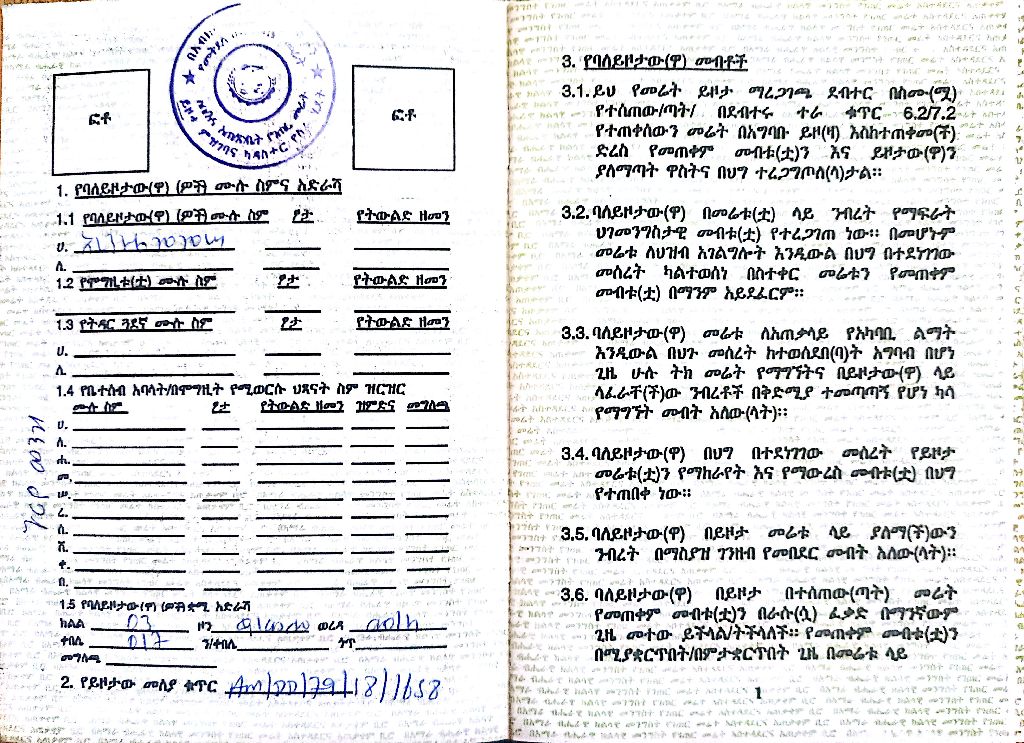 ፎቶ
ፎቶ
1. የባለይዞታው(ዋ) (ዎች) ሙሉ ስምና አድራሻ
1.1 የባለይዞታው(ዋ) (ዎች) ሙሉ ስም ፆታ የትውልድ ዘመን
ሀ.
ለ.
1.2 የሞግዚቱ(ቷ) ሙሉ ስም ፆታ የትውልድ ዘመን
1.3 የትዳር ጓደኛ ሙሉ ስም ፆታ የትውልድ ዘመን
ሀ.
ለ.
1.4 የቤተሰብ አባላት/በሞግዚት የሚወርሱ ህጻናት ስም ዝርዝር
ሙሉ ስም ፆታ የትውልድ ዘመን ዝምድና መግለጫ
ሀ.
ለ.
ሐ.
መ.
ሠ.
ረ.
ሰ.
ሸ.
ቀ.
በ.
1.5 የባለይዞታው(ዋ) (ዎች) ቋሚ አድራሻ
ክልል 03 ዞን ወረዳ
ቀበሌ 017 ን/ቀበሌ ጎጥ
መግለጫ
2. የይዞታው መለያ ቁጥር Am/00/79/18/1658
3. የባለይዞታው(ዋ) መብቶች
3.1. ይህ የመሬት ይዞታ ማረጋገጫ ደብተር በስሙ(ሟ)
የተሰጠው/ጣት/ በደብተሩ ተራ ቁጥር 6.2/7.2
የተጠቀሰውን መሬት በአግባቡ ይዞ(ዛ) እስከተጠቀመ(ች)
ድረስ የመጠቀም መብቱ(ቷ)ን እና ይዞታው(ዋ)ን
ያለማጣት ዋስትና በህግ ተረጋግጦለ(ላ)ታል።
3.2. ባለይዞታው(ዋ) በመሬቱ(ቷ) ላይ ንብረት የማፍራት
ህገመንግስታዊ መብቱ(ቷ) የተረጋገጠ ነው። በመሆኑም
መሬቱ ለህዝብ አገልግሎት እንዲውል በህግ በተደነገገው
መሰረት ካልተወሰነ በስተቀር መሬቱን የመጠቀም
መብቱ(ቷ) በማንም አይደፈርም።
3.3. ባለይዞታው(ዋ) መሬቱ ለአጠቃላይ የአካባቢ ልማት
እንዲውል በህጉ መሰረት ከተወሰደበ(ባ)ት አግባብ በሆነ
ጊዜ ሁሉ ትክ መሬት የማግኘትና በይዞታው(ዋ) ላይ
ላፈራቸ(ች)ው ንብረቶች በቅድሚያ ተመጣጣኝ የሆነ ካሳ
የማግኘት መብት አለው(ላት)።
3.4. ባለይዞታው(ዋ) በህግ በተደነገገው መሰረት የይዞታ
መሬቱ(ቷ)ን የማከራየት እና የማውረስ መብቱ(ቷ) በህግ
የተጠበቀ ነው።
3.5. ባለይዞታው(ዋ) በይዞታ መሬቱ ላይ ያለማ(ች)ውን
ንብረት በማስያዝ ገንዘብ የመበደር መብት አለው(ላት)።
3.6. ባለይዞታው(ዋ) በይዞታ በተሰጠው(ጣት) መሬት
የመጠቀም መብቱ(ቷ)ን በራሱ(ሷ) ፈቃድ በማንኛውም
ጊዜ መተው ይችላል/ትችላለች። የመጠቀም መብቱ(ቷ)ን
በሚያቋርጥበት/በምታቋርጥበት ጊዜ በመሬቱ ላይ
1